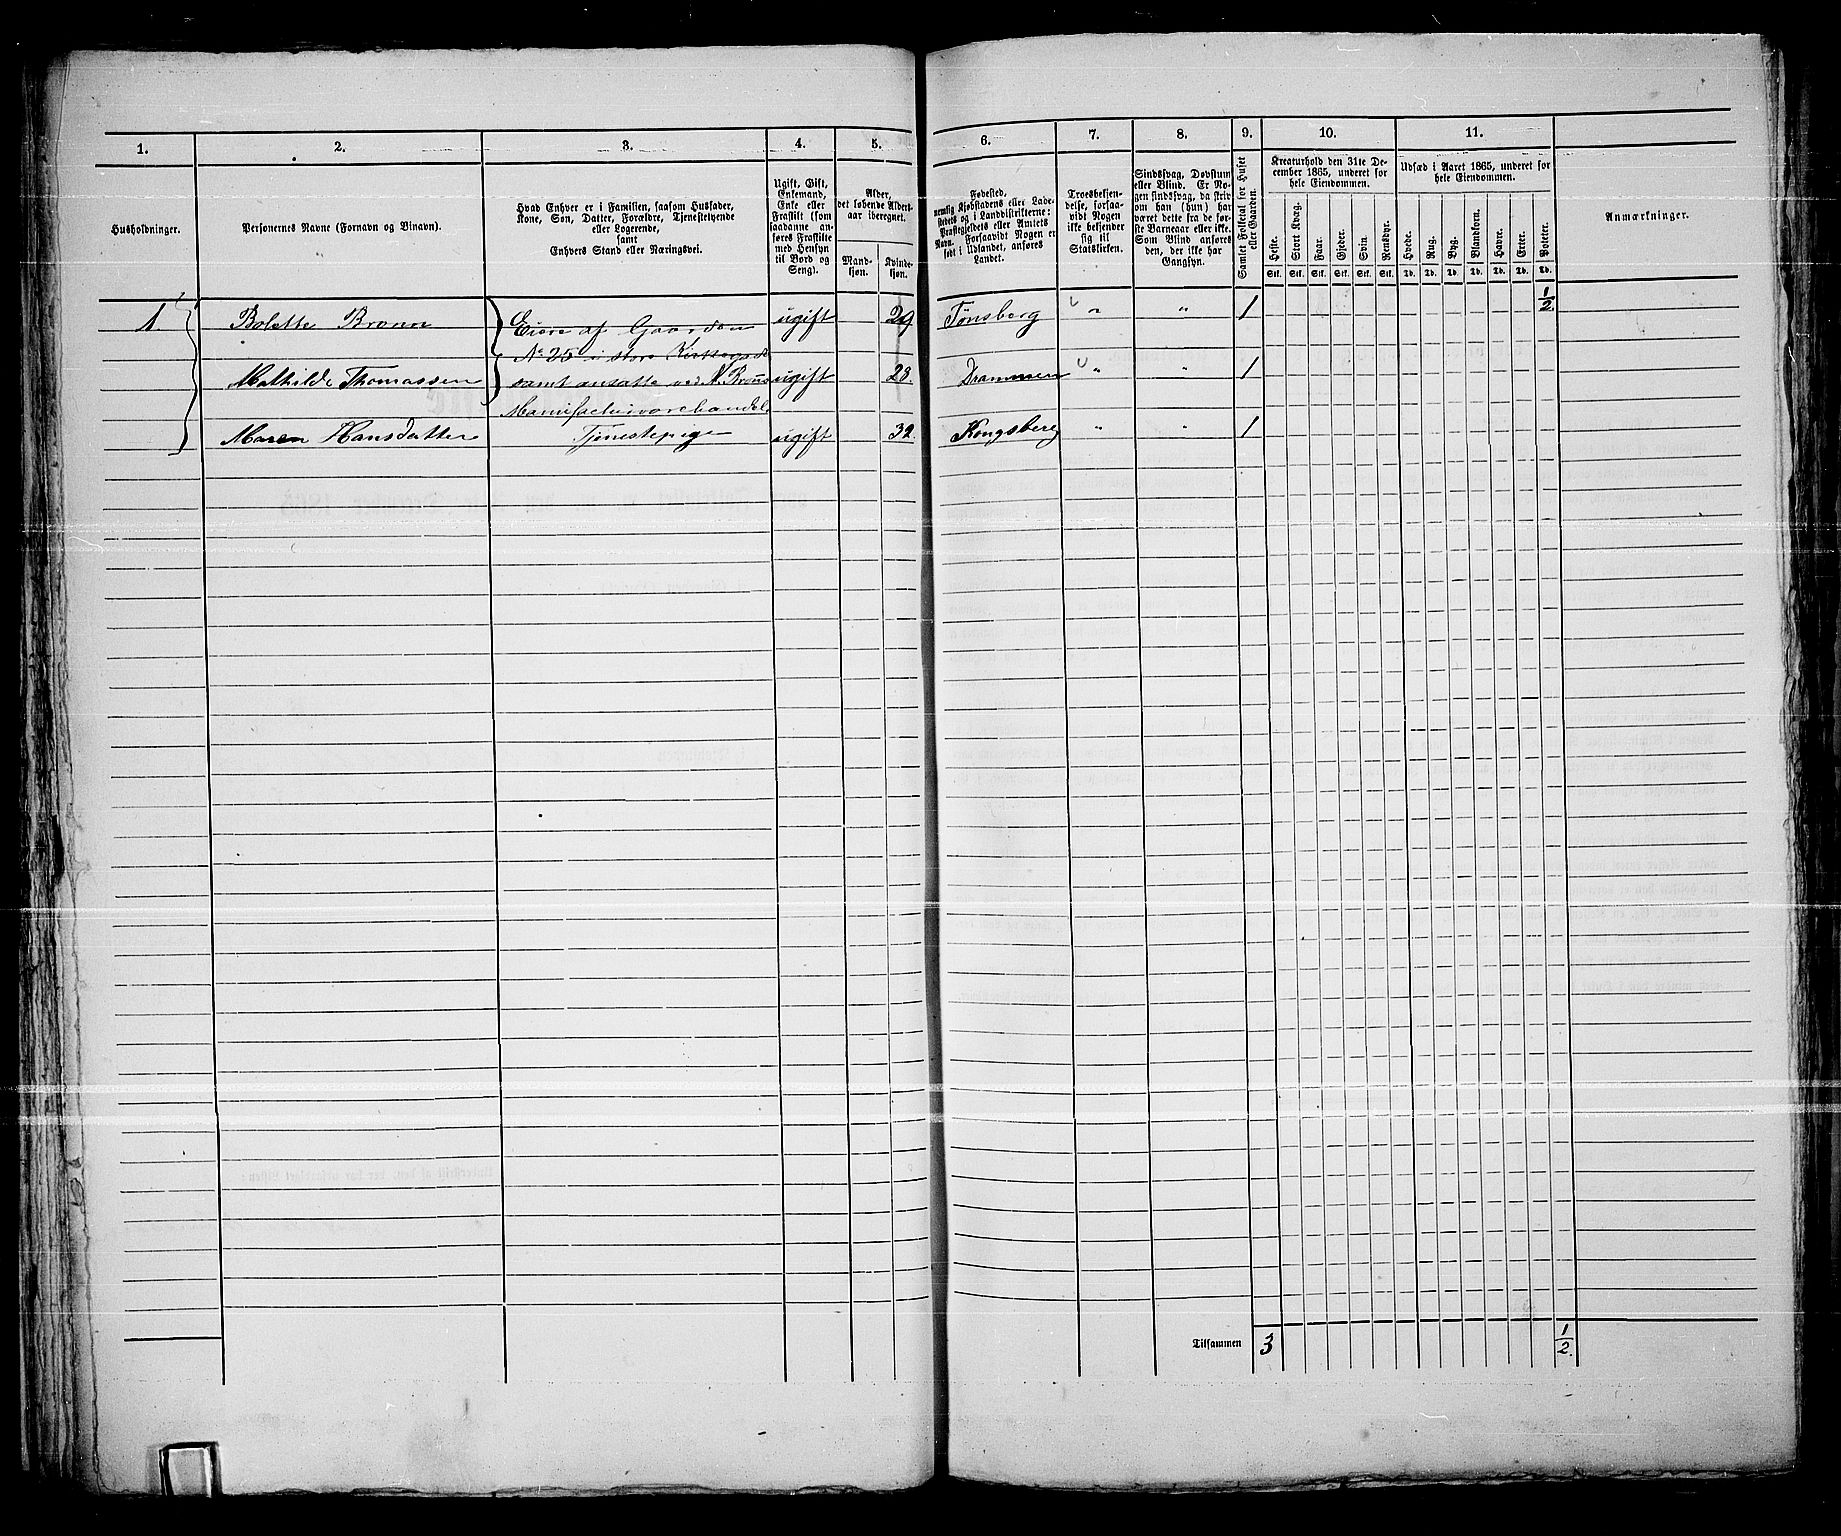 1.
2.
3.
4.
5.
6.
7.
8.
9.
10.
11.
Husholdninger.
Personernes Navne (Fornavn og Binavn).
Hvad Enhver er i Familien, saasom Husfader,
Kone, Søn, Datter, Forældre, Tjenestetyende
eller Logerende,
samt
Enhvers Stand eller Næringsvei.
Ugift, Gift,
Enkemand,
Enke eller
Fraskilt (som
saadanne an-
føres Fraskilte
med Hensyn
til Bord og
Seng).
Alder,
det løbende Alders-
aar iberegnet.
Mand-
kjøn.
Kvinde-
kjøn.
Fødested,
nemlig Kjøbstadens eller Lade-
stedets og i Landdistrikterne:
Præstegjeldets eller Amtets
Navn. Forsaavidt Nogen er
født i Udlandet, anføres
Landet.
Troesbekjen-
delse, forsaa-
vidt Nogen
ikke bekjender
sig til
Statskirken.
Sindssvag, Døvstum
eller Blind. Er No-
gen sindssvag, da skriv
om han (hun) har
været dette fra de før-
ste Barneaar eller ikke.
Som Blind anføres
den, der ikke har
Gangsyn.
Samlet Folketal for Huset
eller Gaarden.
Kreaturhold den 31te De-
cember 1865, underet for
hele Eiendommen.
Heste.
Stort Kvæg.
Faar.
Gjeder.
Svin.
Rensdyr.
Stk. Stk. Stk. Stk. Stk. Stk.
Udsæd i Aaret 1865, underet for
hele Eiendommen.
Hvede.
Rug.
Byg.
Blandkorn.
Havre.
Erter.
Poteter.
Td. Td. Td. Td. Td. Td. Td.
Anmærkninger.
1. Bolette Brønn Eiere af Gaarden ugift 29 Tønsberg " " 1 1/2
No 25 i store
Mathilde Thomassen samt ansatte ved ugift 28. Drammen " " 1
Manufacturvarehandel.
Maren Hansdatter Tjenestepige ugift 32. Kongsberg " " 1
Tilsammen 3 1/2.